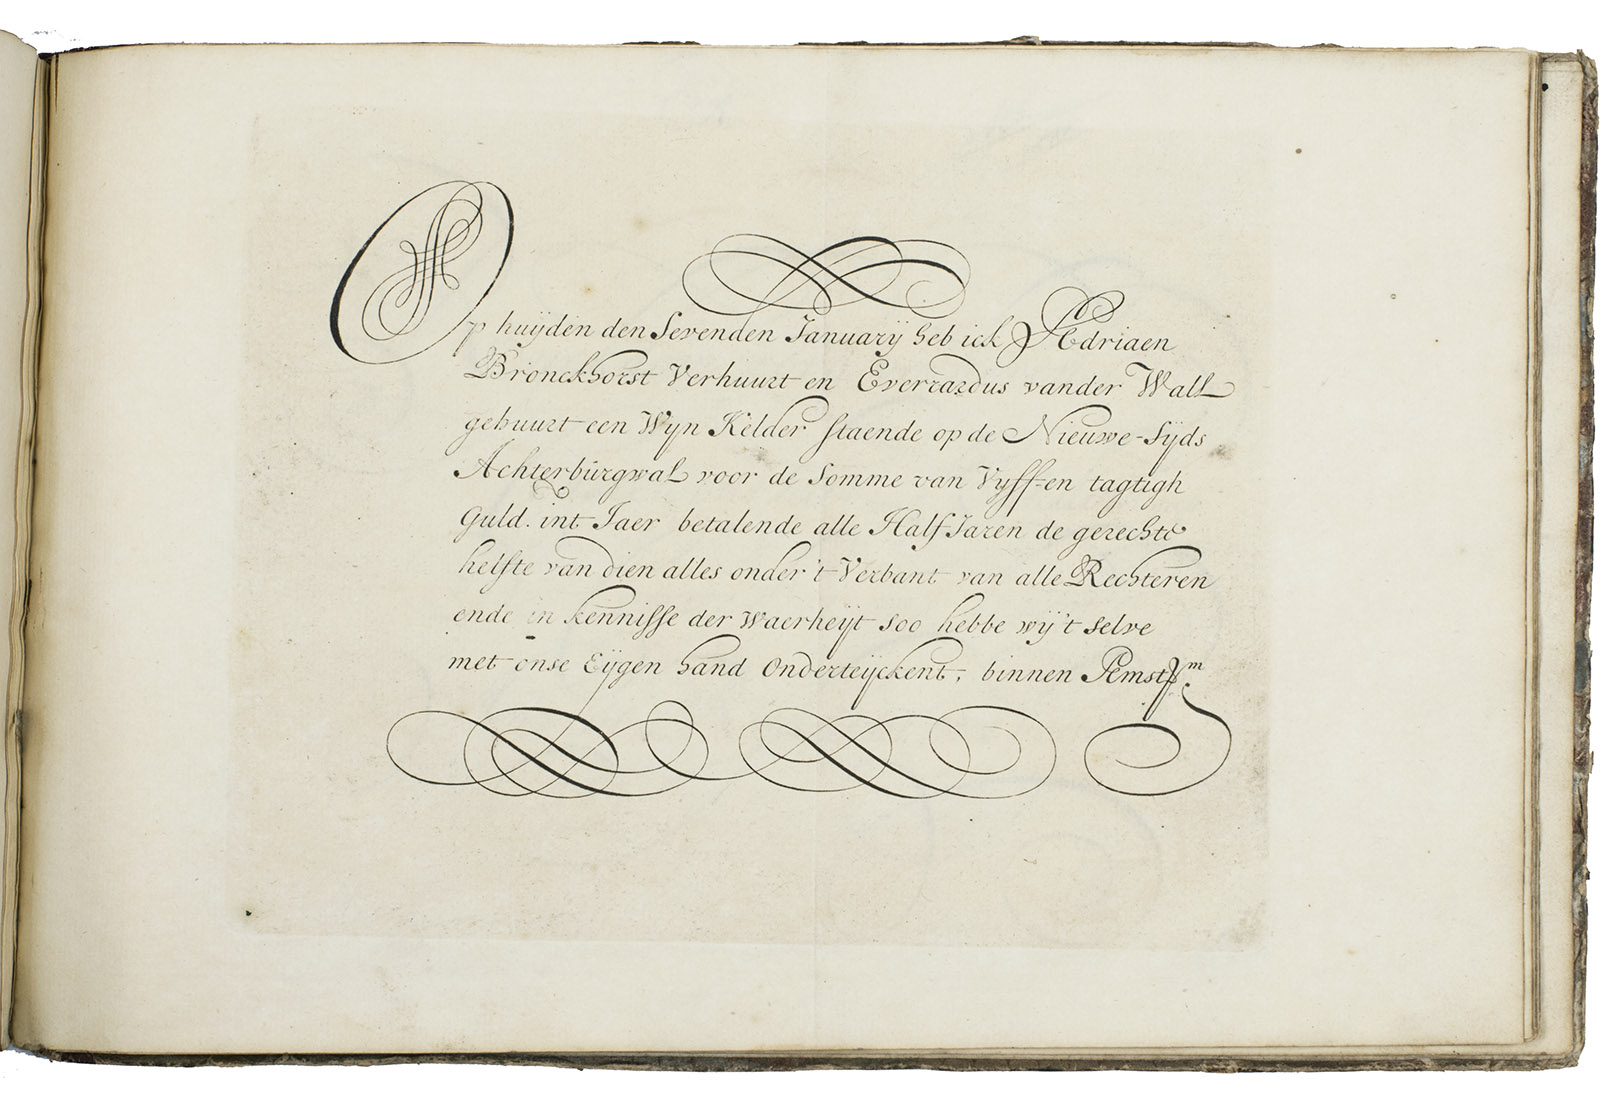 Op huijden den Sevenden Januarij heb ick Adriaen
Bronckhorst Verhuurt en Everrardus vander Wall
gehuurt een Wijn Kelder staende op de Nieuwe-Sijds
Achterburgwal voor de Somme van Vijff-en tagtigh
Guld. int Jaer betalende alle Half Jaren de gerechte
helfte van dien alles onder 't Verbant van alle Rechteren
ende in kennisse der Waerheijt soo hebbe wij 't selve
met onse Eijgen hand Onderteijckent, binnen Amst^m.